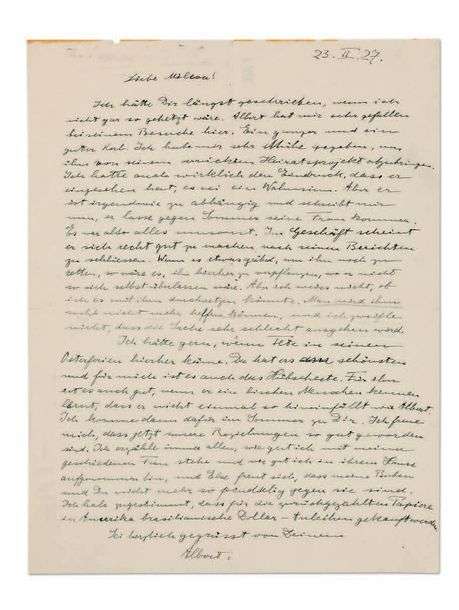 23. II. 27.
Liebe Mileva!
Ich hätte Dir längst geschrieben, wenn ich
nicht gar so gehetzt wäre. Albert hat mir sehr gefallen
bei seinem Besuche hier. Ein ganzer und ein
guter Kerl. Ich habe mir sehr Mühe gegeben, um
ihn von seinem verrückten Heiratsprojekt abzubringen.
Ich hatte auch wirklich den Eindruck, dass er
eingesehen hat, es sei ein Wahnsinn. Aber er
ist irgendwie zu abhängig und schreibt mir
nun, er lasse gegen Sommer seine Frau kommen.
Es war also alles umsonst. Im Geschäft scheint
er sich recht gut zu machen nach seinen Berichten
zu schliessen. Wenn es etwas gäbe, um ihn noch zu
retten, so wäre es, ihn hierher zu verpflanzen, wo er nicht
so sich selbst überlassen wäre. Aber ich weiss nicht, ob
ich es mit ihm durchsetzen könnte. Man wird ihm
wohl nicht mehr helfen können, und ich zweifle
nicht, dass die Sache sehr schlecht ausgehen wird.
Ich hätte gern, wenn Tete in seinen
Osterferien hierher käme. Da hat er es am schönsten
und für mich ist es auch das Hübscheste. Für ihn
ist es auch gut, wenn er ein bischen Menschen kennen
lernt, dass er nicht etwa so hineinfällt wie Albert.
Ich komme dann dafür im Sommer zu Dir. Ich freue
mich, dass jetzt unsere Beziehungen so gut geworden
sind. Ich erzähle immer allen, wie gut ich mit meiner
geschiedenen Frau stehe und wie gut ich in ihrem Hause
aufgenommen bin, und Else freut sich, dass meine Buben
und Du nicht mehr so feindselig gegen sie sind.
Ich habe zugestimmt, dass für die zurückgezahlten Papiere
in Amerika brasilianische Dollar-Anleihen gekauft werden.
Sei herzlich gegrüsst von Deinem
Albert.